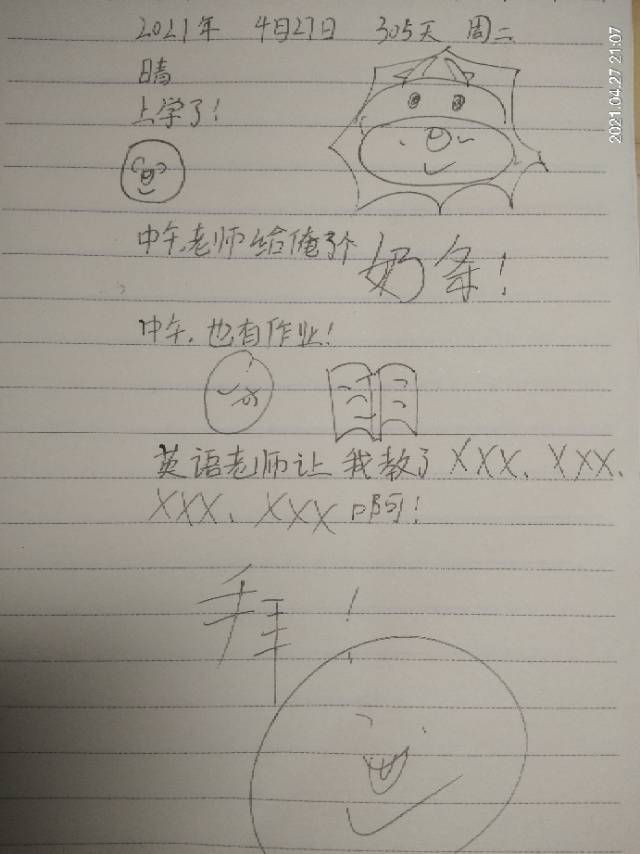 2021年 4月27日 305天 周二
晴
上学了!
中午,老师给俺了个 奶条!
中午,也有作业!
英语老师让我教了XXX、XXX、
XXX、XXX啊!
拜!
2021.04.27 21:07